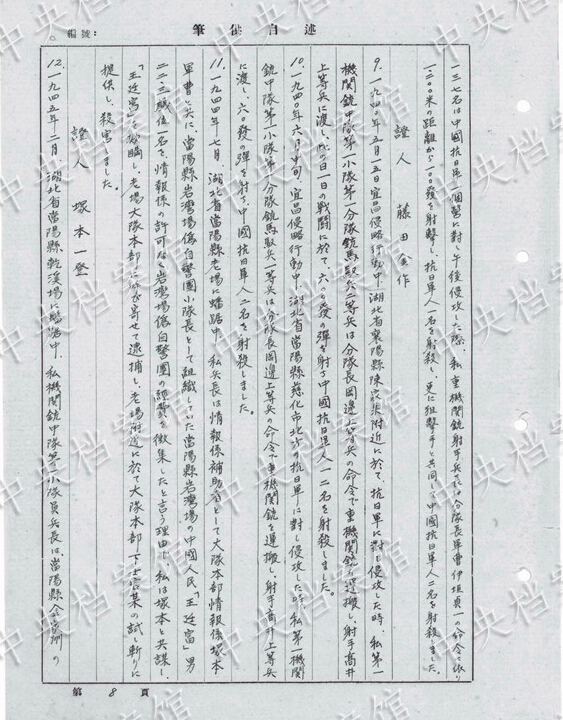 筆供自述
編號：
一三七名は中國抗日軍一個營に對し午後侵攻した際、私重機関銃射手兵
は分隊長軍曹伊垣貞一の命令に依り
一二〇〇米の距離から一〇〇發を射撃し、抗日軍人一名を射殺し、更に狙撃手と共同して中國抗日軍人二名を射殺しました。
證人 藤田
作
9.一九四〇年五月一五日宜昌侵略行動中、湖北省襄陽縣陳
集附近に於て、抗日軍に對し侵攻した時、私第一
機関銃中隊第一小隊第一分隊銃馬馭兵二等兵は分隊長岡邊上等兵の命令で重機関銃を運搬し、射手高井
上等兵に渡し、此の日一日の戦闘に於て、六〇〇發の彈を射ち中國抗日軍人一二名を射殺しました。
10.一九四〇年六月中旬、宜昌侵略行動中、湖北省當陽縣慈化市北方の抗日軍に對し侵攻した時、私第一機関
銃中隊第一小隊第一分隊銃馬馭兵一等兵は分隊長岡邊上等兵の命令で重機関銃を運搬し、射手高井上等兵
に渡し、六〇發の彈を射ち、中國抗日軍人二名を射殺しました。
11.一九四四年七月、湖北省當陽縣老場に蟠踞中、私兵長は情報係補助者として大隊本部情報係塚本
軍曹と共に、當陽縣岩灣場偽自警團小隊長として組織していた當陽縣岩灣場の中國人民「王近富」男
二二、三歳位一名を、情報係の許可なく岩灣場偽自警團の經費を徴集したと言う理由で、私は塚本と共謀し、
「王近富」を欺瞞し、老場大隊本部に呼び寄せて逮捕し、老場附近に於て大隊本部一下士官某の試し斬りに
提供し、殺害しました。
證人 塚本一登
12.一九四五年二月、湖北省當陽縣乾溪場に蟠踞中、私機関銃中隊第一小隊員兵長は當陽縣
の
第8頁
中央档案馆